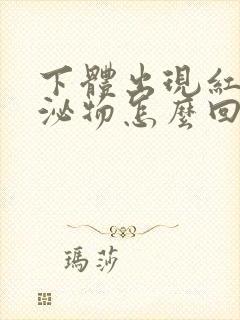 下體出現紅
泌物怎麼回
瑪莎